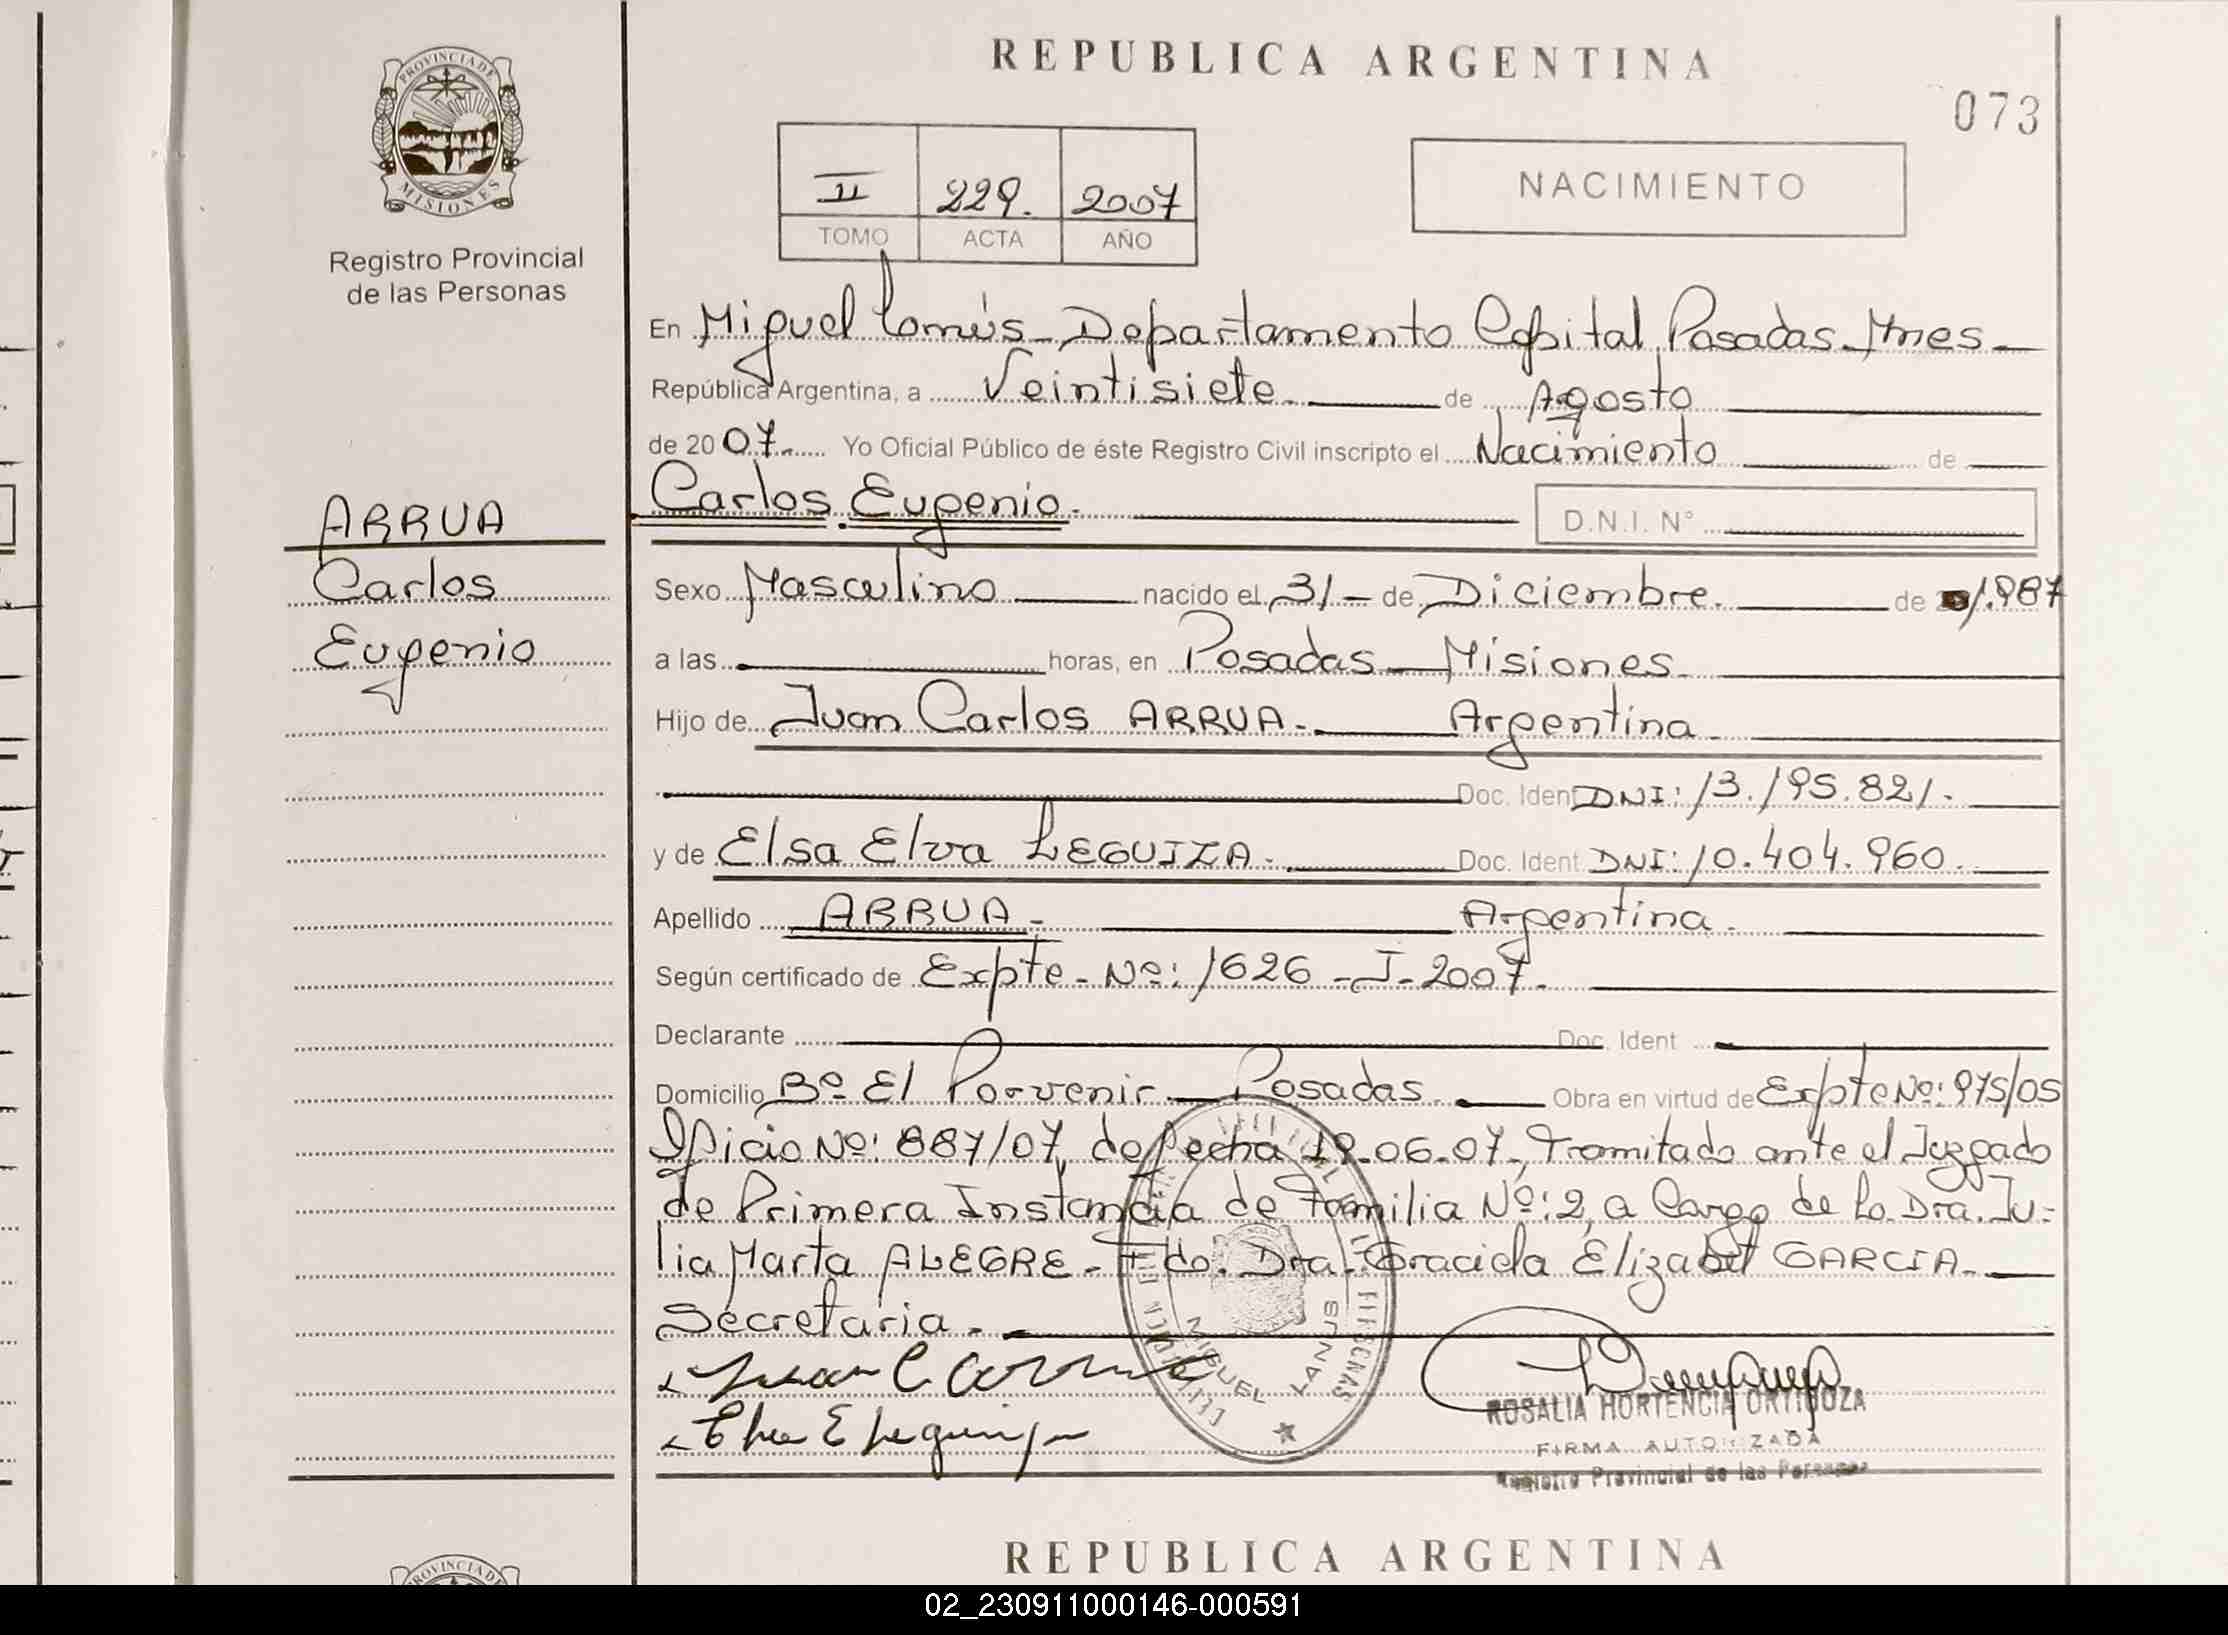 REPUBLICA ARGENTINA
073
PROVINCIA DE
MISIONES
Registro Provincial
de las Personas
II 229. 2007
TOMO ACTA AÑO
NACIMIENTO
En Miguel Lanús - Departamento Capital Posadas - Mnes -
República Argentina, a Veintisiete. de Agosto
de 2007. Yo Oficial Público de éste Registro Civil inscripto el Nacimiento de
ARRUA
Carlos
Eugenio
Carlos Eugenio. D.N.I. N°
Sexo Masculino nacido el 31 - de Diciembre. de 1.987
a las horas, en Posadas - Misiones.
Hijo de Juan Carlos ARRUA. Argentina.
Doc. Ident DNI: 13.195.821.
y de Elsa Elva LEGUIZA. Doc. Ident DNI: 10.404.960.
Apellido ARRUA. Argentina.
Según certificado de Expte - Nº: 1626 - J - 2007.
Declarante Doc. Ident
Domicilio Bº El Porvenir - Posadas. Obra en virtud de Expte Nº: 975/05
Oficio Nº: 887/07, de fecha 19.06.07, Tramitado ante el Juzgado
de Primera Instancia de Familia Nº: 2, a Cargo de La Dra. Ju=
lia Marta ALEGRE - Fdo. Dra. Graciela Elizabet GARCIA.
Secretaria.
Juan C Arrua
MIGUEL LANUS
PERSONAS
ROSALIA HORTENCIA ORTIGOZA
FIRMA AUTORIZADA
Registro Provincial de las Personas
REPUBLICA ARGENTINA
PROVINCIA DE
02_230911000146-000591